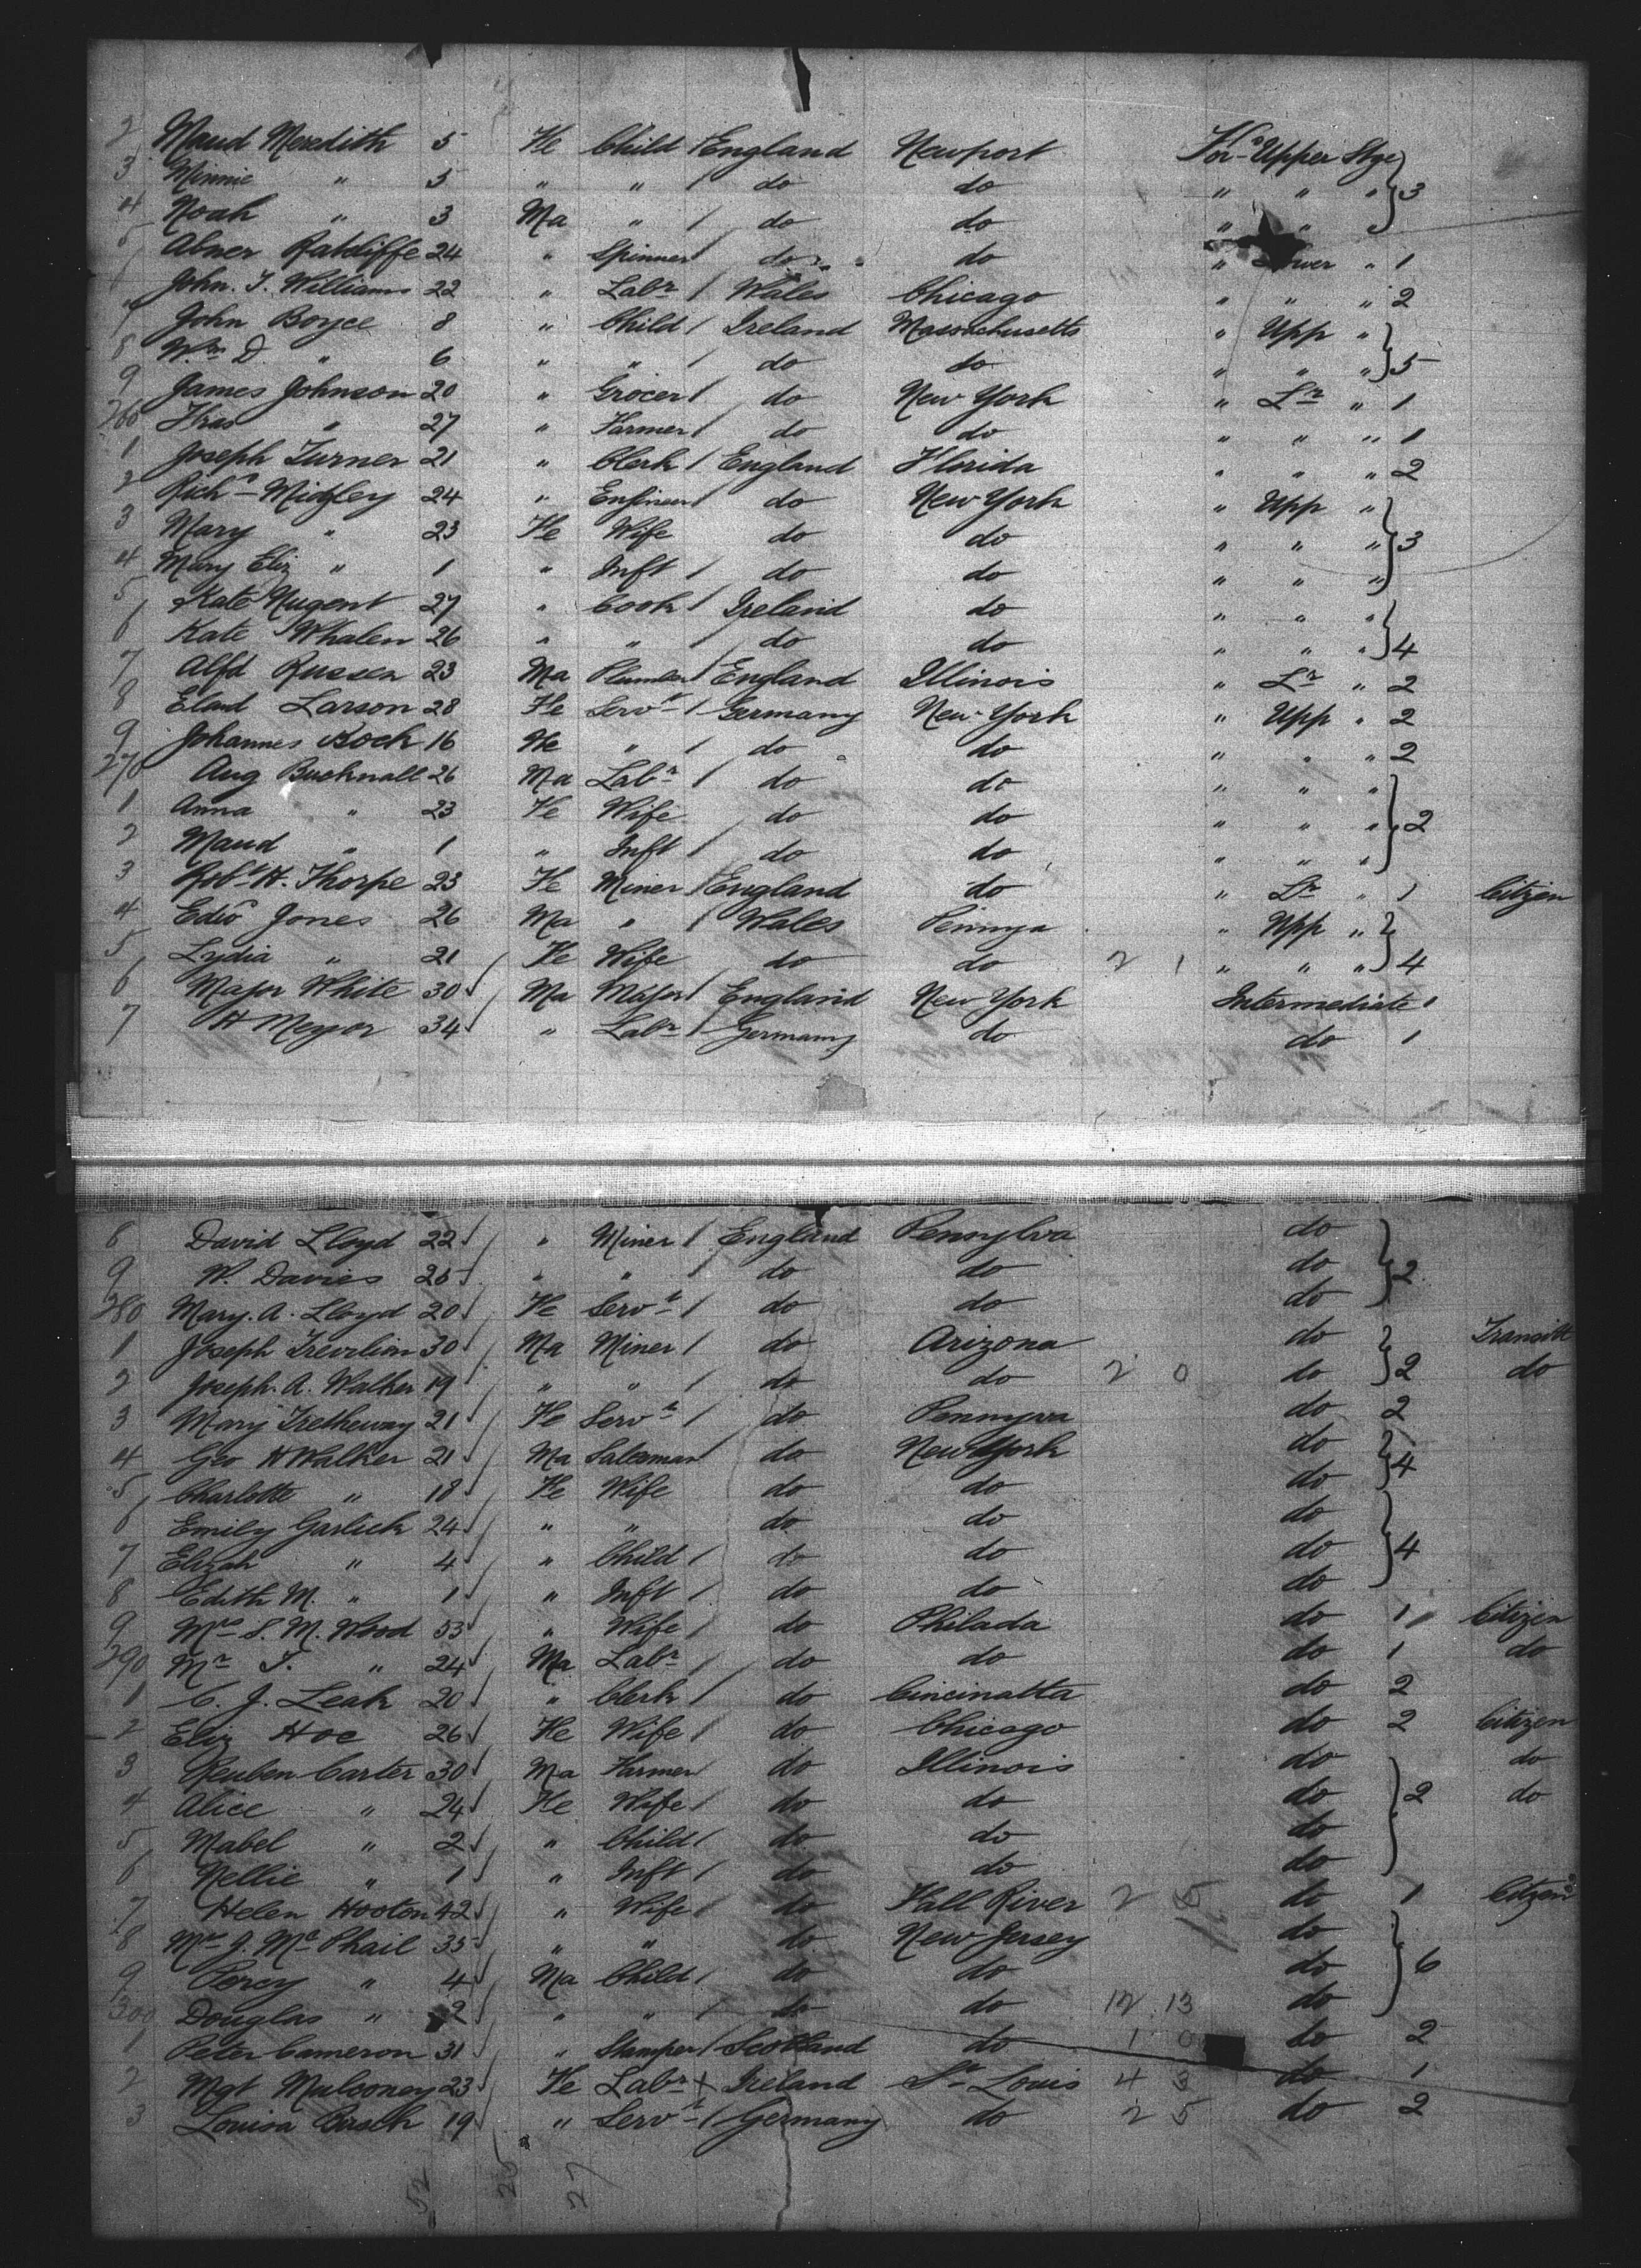 2 Maud Meredith 5 Fe Child / England Newport For'd Upper Stge
3 Minnie " 5 " " / do do " " " } 3
4 Noah " 3 Ma " / do do " " "
5 Abner Ratcliffe 24 " Spinner / do do " Lower " 1
6 John. T. Williams 22 " Labr / Wales Chicago " " " 2
7 John Boyce 8 " Child / Ireland Massachusetts " Upp "
8 Wm D. " 6 " " / do do " " " } 5
9 James Johnson 20 " Grocer / do New York " Lr " 1
260 Thos " 27 " Farmer / do do " " " 1
1 Joseph Turner 21 " Clerk / England Florida " " " 2
2 Richd Midgley 24 " Engineer / do New York " Upp "
3 Mary " 23 Fe Wife do do " " " } 3
4 Mary Eliz " 1 " Inft / do do " " "
5 Kate Nugent 27 " Cook / Ireland do " " "
6 Kate Whalen 26 " " / do do " " " } 4
7 Alfd 23 Ma Plumber / England Illinois " Lr " 2
8 Larson 28 Fe Servt / Germany New York " Upp " 2
9 Johannes Koch 16 " / do do " " " 2
270 Aug Bucknall 26 Ma Labr / do do " " "
1 Anna " 23 Fe Wife do do " " " } 2
2 Maud " 1 " Inft / do do " " "
3 Robt H. Thorpe 23 Fe Miner / England do " Lr " 1 Citizen
4 Edwd Jones 26 Ma " / Wales Pennya " Upp "
5 Lydia " 21 Fe Wife do do 2 1 " " " } 4
6 Major White 30 Ma Major / England New York Intermediate 1
7 H Meyer 34 " Labr / Germany do do 1
8 David Lloyd 22 " Miner / England Pennylva do
9 W. Davies 25 " " / do do do } 2
280 Mary. A. Lloyd 20 Fe Servt / do do do
1 Joseph Trevelion 30 Ma Miner / do Arizona do Transitt
2 Joseph. A. Walker 19 " " / do do 2 0 do } 2 do
3 Mary Tretheway 21 Fe Servt / do Pennyva do 2
4 Geo H Walker 21 Ma Salesman / do New York do
5 Charlotte " 18 Fe Wife do do do } 4
6 Emily Garlick 24 " " do do do
7 Elizah " 4 " Child / do do do } 4
8 Edith M. " 1 " Inft / do do do
9 Mrs S. M. Wood 53 " Wife / do Philada do 1 Citizen
290 Mr T. " 24 Ma Labr / do do do 1 do
1 C. J. Leak 20 " Clerk / do Cincinatta do 2
2 Eliz Hoe 26 Fe Wife / do Chicago do 2 Citizen
3 Reuben Carter 30 Ma Farmer / do Illinois do do
4 Alice " 24 Fe Wife / do do do } 2 do
5 Mabel " 2 " Child / do do do
6 Nellie " 1 " Inft / do do do
7 Helen Hooton 42 " Wife / do Fall River 2 5 do 1 Citizens
8 Mrs J. McPhail 35 " " do New Jersey do
9 Percy " 4 Ma Child / do do do } 6
300 Douglas " 2 " " / do do 12 13 do
1 Peter Cameron 31 " Stamper / Scotland do 1 0 do 2
2 Mgt Mulconey 23 Fe Labr Ireland St Louis 4 3 do 1
3 Louisa Busch 19 " Servt / Germany do 2 5 do 2
52 25 27